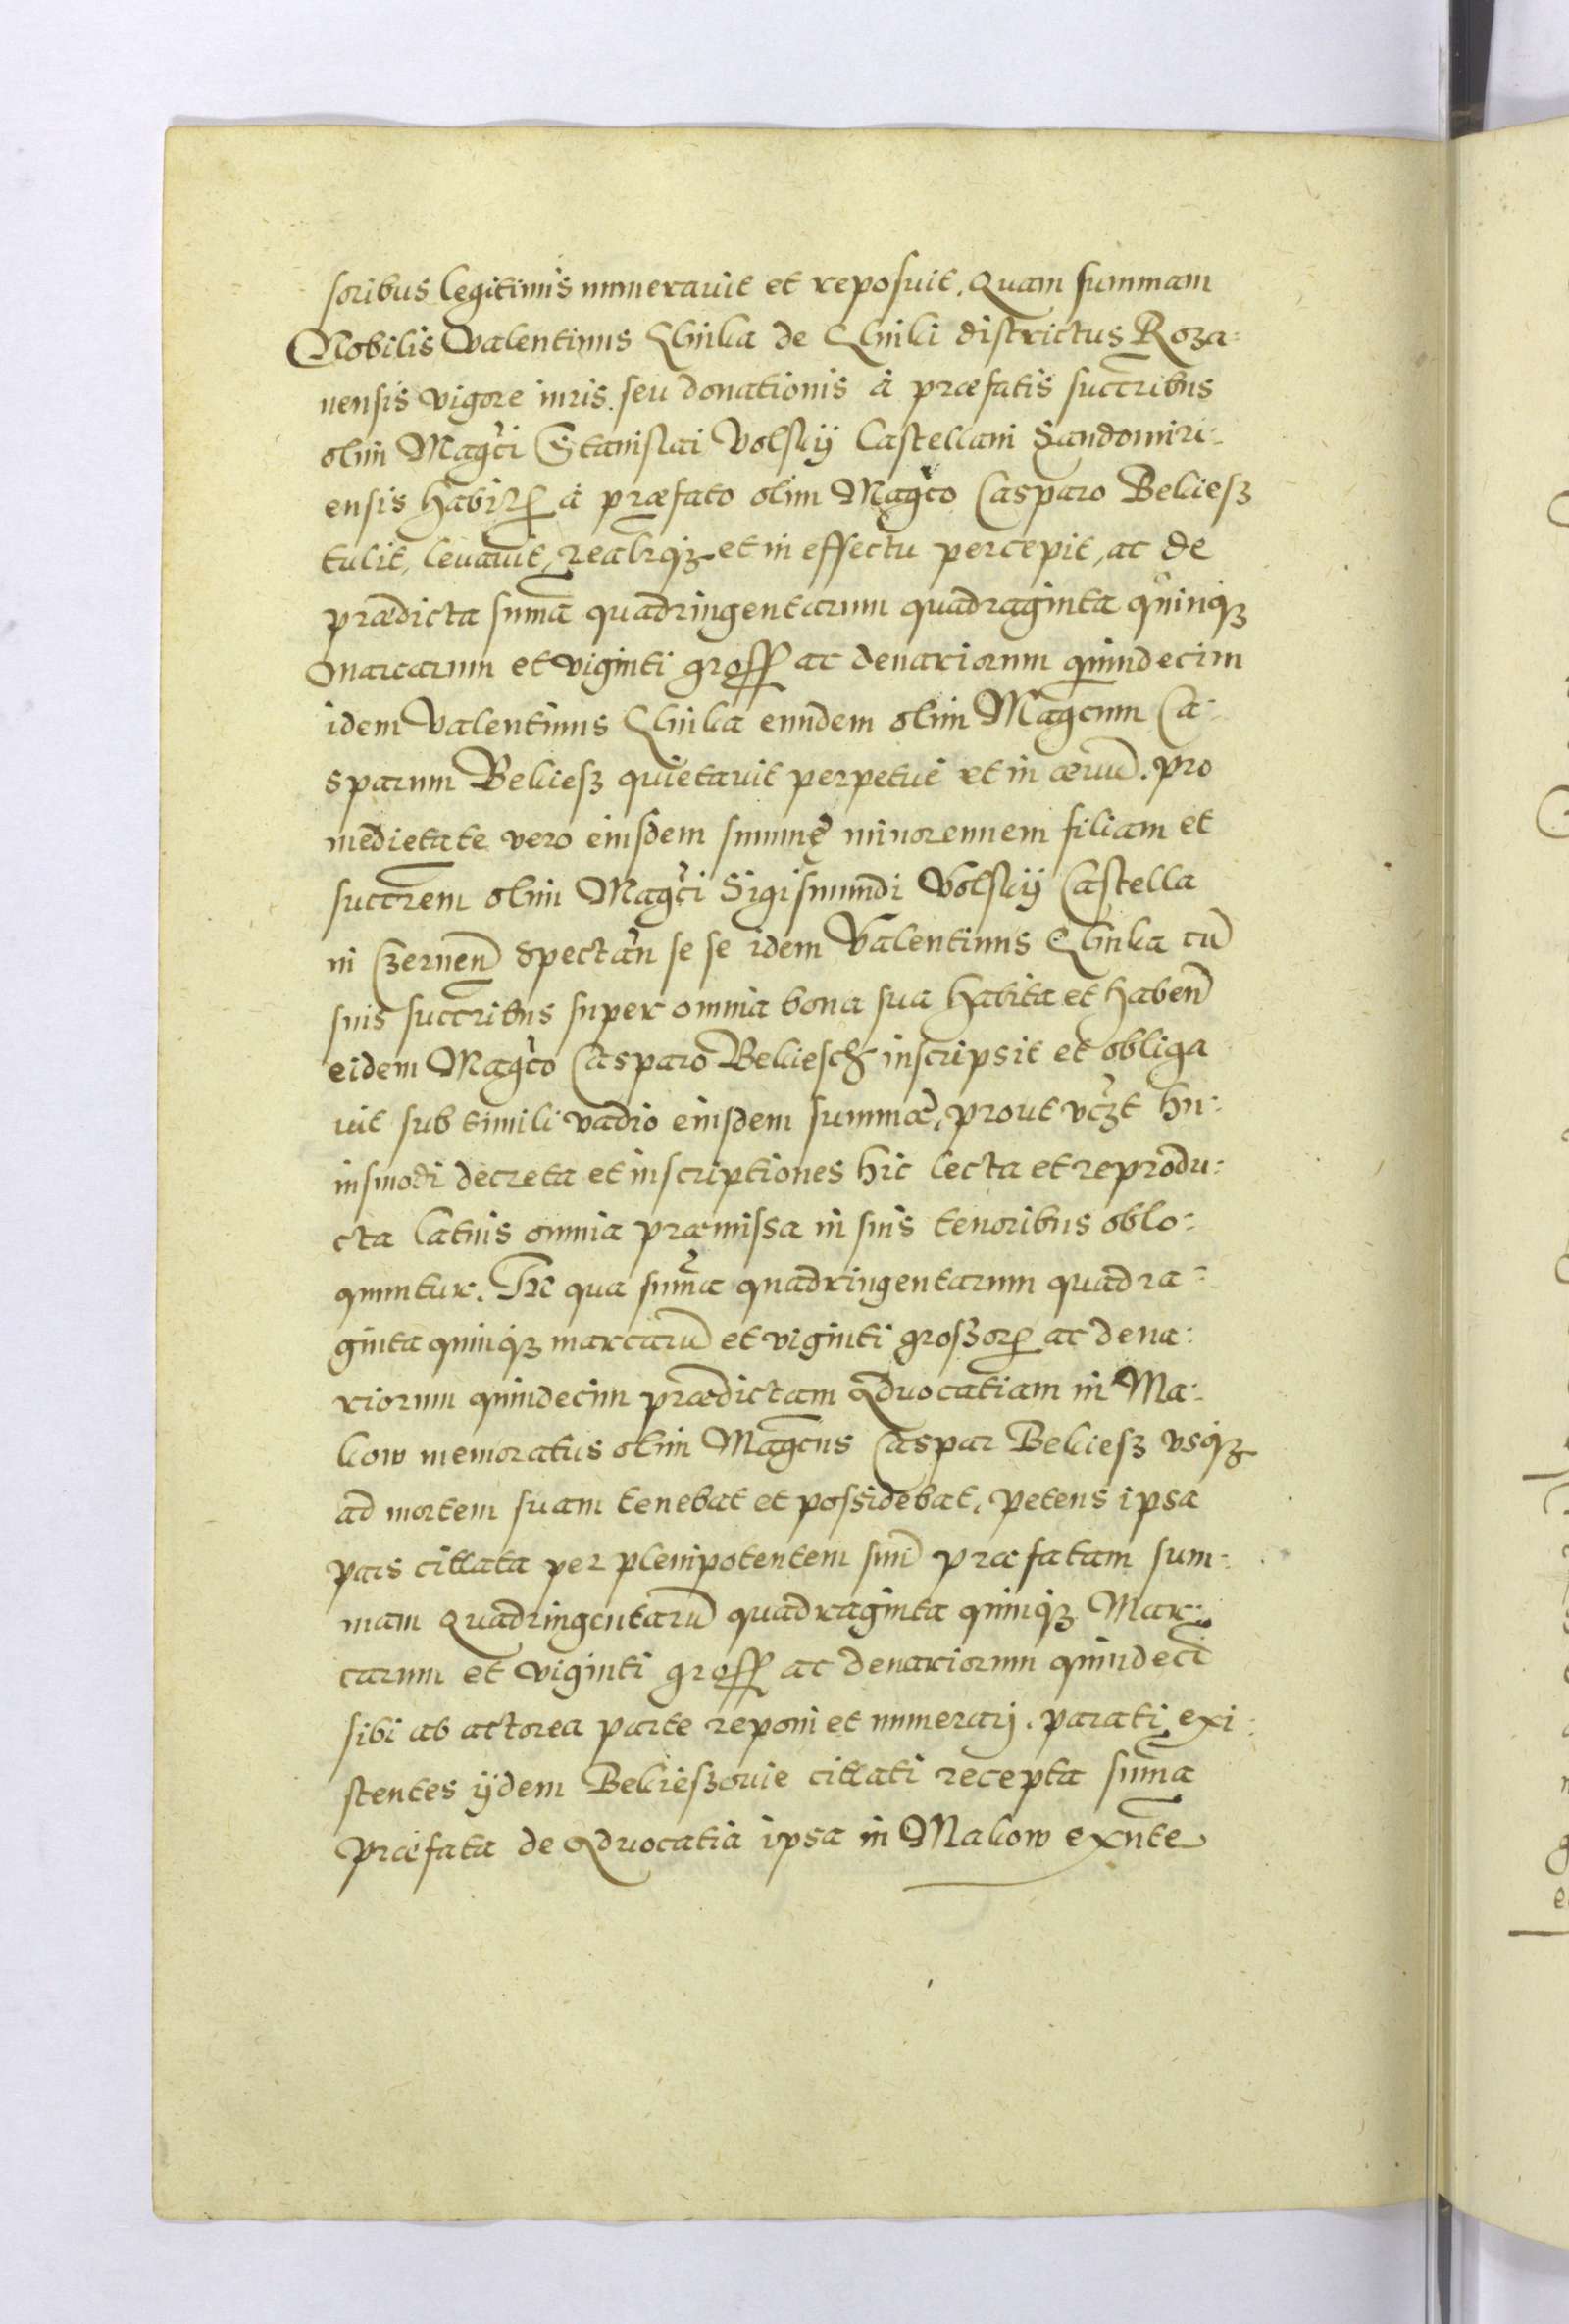 soribus legitimis numerauit et reposuit. Quam summam
Nobilis Valentinus Glinka de Glinki districtus Roza-
nensis vigore iuris seu donationis à præfatis succribus
olim Magci Stanislai Volskÿ Castellani Sandomiri-
ensis habit à præfato olim Magco Casparo Bekiesz
tulit, leuauit, realrqz et in effectu percepit, ac de
prædicta suma quadringentarum quadraginta quinqz
marcarum et viginti gross ac denariorum quindecim
idem Valentinus Glinka eundem olim Magcum Ca-
sparum Bekiesz quietauit perpetue et in æuu. pro
medietate vero eiusdem summę minorennem filiam et
succrem olim Magci Sigismundi Volskÿ Castella
ni Czernen spectan se se idem Valentinus Glinka cu
suis succribus super omnia bona sua habita et haben
eidem Magco Casparo Bekiesch inscripsit et obliga
uit sub simili vadio eiusdem summæ, prout vczt hu-
iusmodi decreta et inscriptiones hic lecta et reprodu-
cta latius omnia præmissa in suis tenoribus oblo-
quuntur. In qua suma quadringentarum quadra-
ginta quinqz marcaru et viginti grossor ac dena-
riorum quindecim prædictam Aduocatiam in Ma-
kow memoratus olim Magcus Caspar Bekiesz vsqz
ad mortem suam tenebat et possidebat, petens ipsa
pars cittata per plenipotentem suu præfatam sum-
mam Quadringentaru quadraginta quinqz Mar-
carum et viginti gross ac denariorum quindeci
sibi ab actorea parte reponi et numerarj. parati exi-
stentes ÿdem Bekieszouie cittati recepta suma
præfata de Aduocatia ipsa in Makow exnte